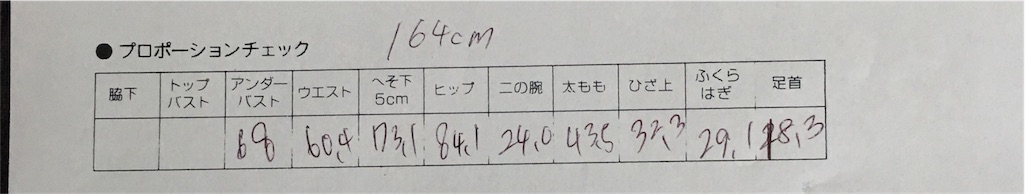 164cm
● プロポーションチェック
脇下 トップバスト アンダーバスト ウエスト へそ下5cm ヒップ 二の腕 太もも ひざ上 ふくらはぎ 足首
68 60,4 73,1 84,1 24,0 43,5 32,3 29,1 18,3